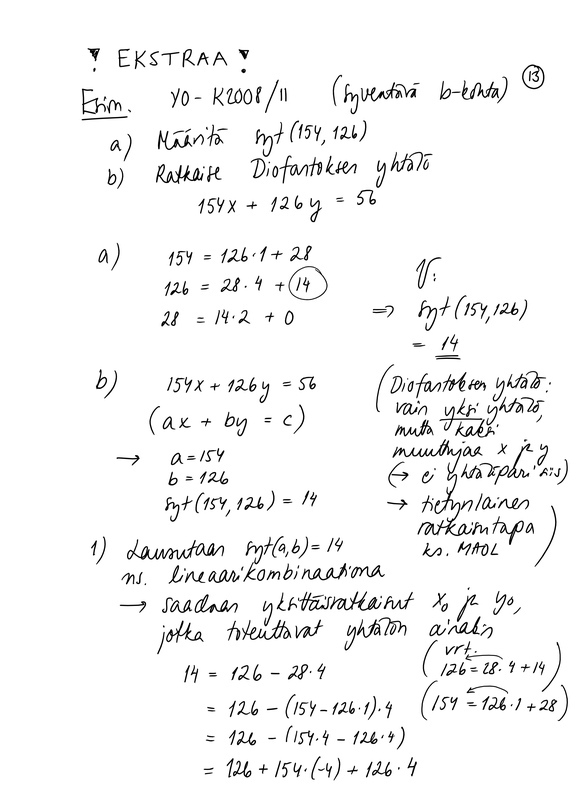 ! EKSTRAA !
13
Esim. YO - K2008/11 (syventävä b-kohta)
a) Määritä syt(154, 126)
b) Ratkaise Diofantoksen yhtälö
154x + 126y = 56
a) 154 = 126·1 + 28
126 = 28·4 + 14
28 = 14·2 + 0
V:
=> syt(154,126)
= 14
b) 154x + 126y = 56
(ax + by = c)
→ a = 154
b = 126
syt(154, 126) = 14
(Diofantoksen yhtälö:
vain yksi yhtälö,
mutta kaksi
muuttujaa x ja y
(→ ei yhtälöpari siis)
→ tietynlainen
ratkaisutapa
ks. MAOL)
1) Lausutaan syt(a,b) = 14
ns. lineaarikombinaationa
→ saadaan yksittäisratkaisut x₀ ja y₀,
jotka toteuttavat yhtälön ainakin
14 = 126 - 28·4
(vrt.
126 = 28·4 + 14)
= 126 - (154 - 126·1)·4
(154 = 126·1 + 28)
= 126 - (154·4 - 126·4)
= 126 + 154·(-4) + 126·4